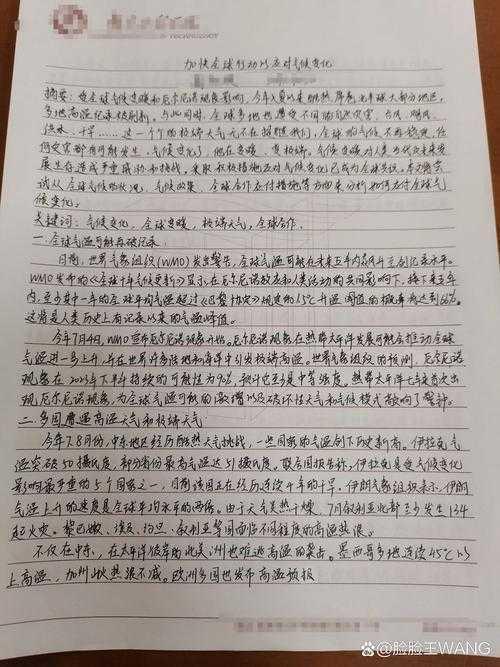 TECHNOLOGY
加快全球行动以应对气候变化
摘要：受全球气候变暖和厄尔尼诺现象影响，今年入夏以来酷热席卷北半球大部分地区，
多地高温纪录被刷新，与此同时，全球多地也遭受不同的自然灾害，台风、飓风、
洪水、干旱……这一个个的极端天气无不在提醒我们，全球的气候不再稳定，任
何灾害都有可能发生，气候变化了，他在变暖、变极端。气候变暖对人类当代及未来发
展生存造成严重威胁和挑战，采取积极措施应对气候变化已成为全球共识。本文将尝
试从全球气候的状况，气候政策、全球合作应付措施等方面来分析如何应付全球气
候变化。
关键词：气候变化，全球变暖，极端天气，全球合作。
一.全球气温可能再破纪录.
日前，世界气象组织(WMO)发出警告，全球气温可能在未来五年内飙升至创纪录水平。
WMO发布的《全球十年气候更新》显示，在厄尔尼诺效应和人类活动的共同影响下，接下来五年
内，至少其中一年的全球年均气温超过《巴黎协定》规定的1.5℃升温阈值的概率将达到66%。
这将是人类历史上有记录以来的气温峰值。
今年7月4日，WMO宣布厄尔尼诺现象开始。厄尔尼诺现象在热带太平洋发展可能会推动全球
气温进一步上升，并在世界许多陆地和海洋中引发极端高温。世界气象组织的预测，厄尔尼诺
现象在2023年下半年持续的可能性为90%，预计它至少是中等强度。热带太平洋七年来首次出
现厄尔尼诺现象，为全球气温可能的激增以及破坏性天气和气候模式敲响了警钟。
二.多国遭遇高温天气和极端天气
今年7、8月份，中东地区经历酷热天气挑战，一些国家的气温创下历史新高。伊拉克气
温突破50摄氏度，部分省份最高气温达51摄氏度。联合国报告称，伊拉克是受气候变化
影响最严重的5个国家之一，目前该国正在经历连续十年的干旱。伊朗气象组织表示，伊朗
气温上升的速度是全球平均水平的两倍。由于天气炎热干燥，7月叙利亚北部至少发生134
起火灾。黎巴嫩、埃及、约旦、叙利亚等国面临不同程度的高温热浪。
不仅在中东，在太平洋彼岸的北美洲也难逃高温的袭击。墨西哥多地连续45℃以
上高温，加州山火热浪不减。欧洲多国也发布高温预报
@脸脸王WANG